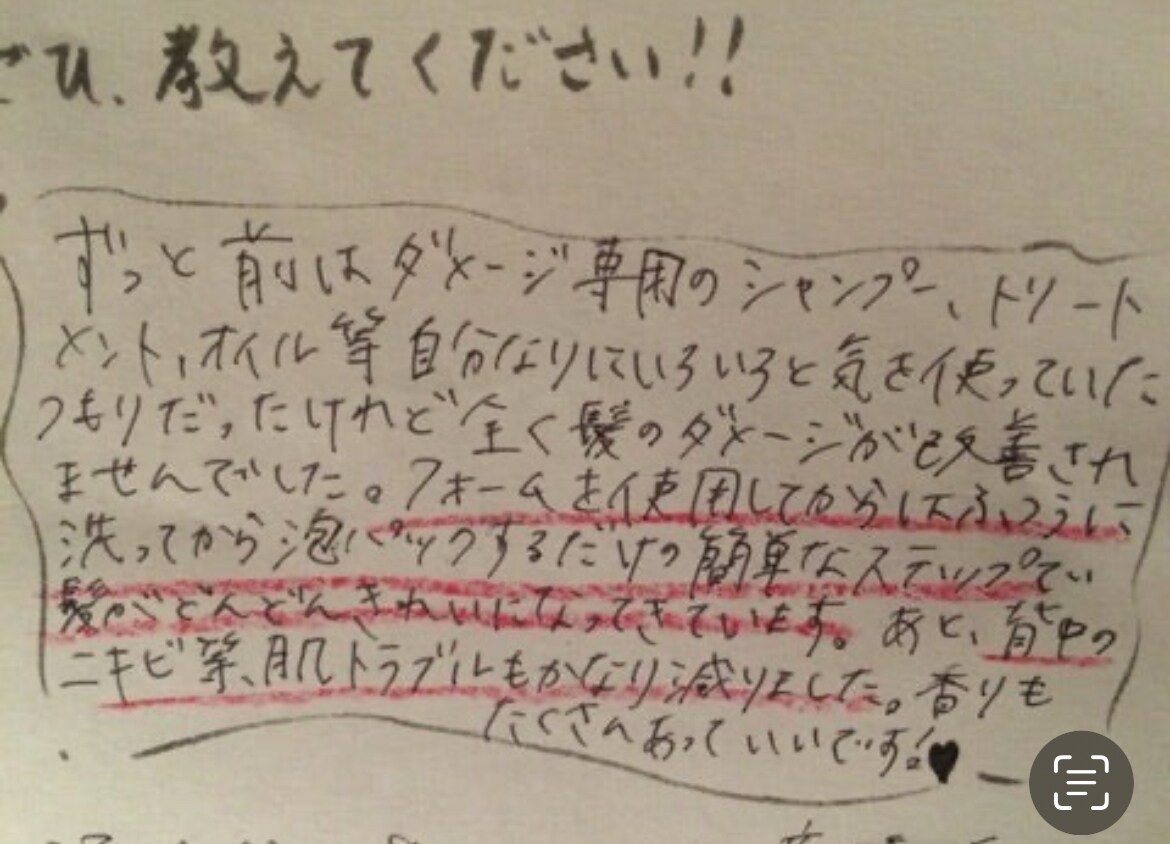 ぜひ、教えてください!!
ずっと前はダメージ専用のシャンプー、トリート
メント、オイル等自分なりにいろいろと気を使っていた
つもりだったけれど全く髪のダメージが改善され
ませんでした。フォームを使用してからはふつうに
洗ってから泡パックするだけの簡単なステップでい
髪がどんどんきれいになってきています。あと、背中の
ニキビ等、肌トラブルもかなり減りました。香りも
たくさんあっていいです!♥